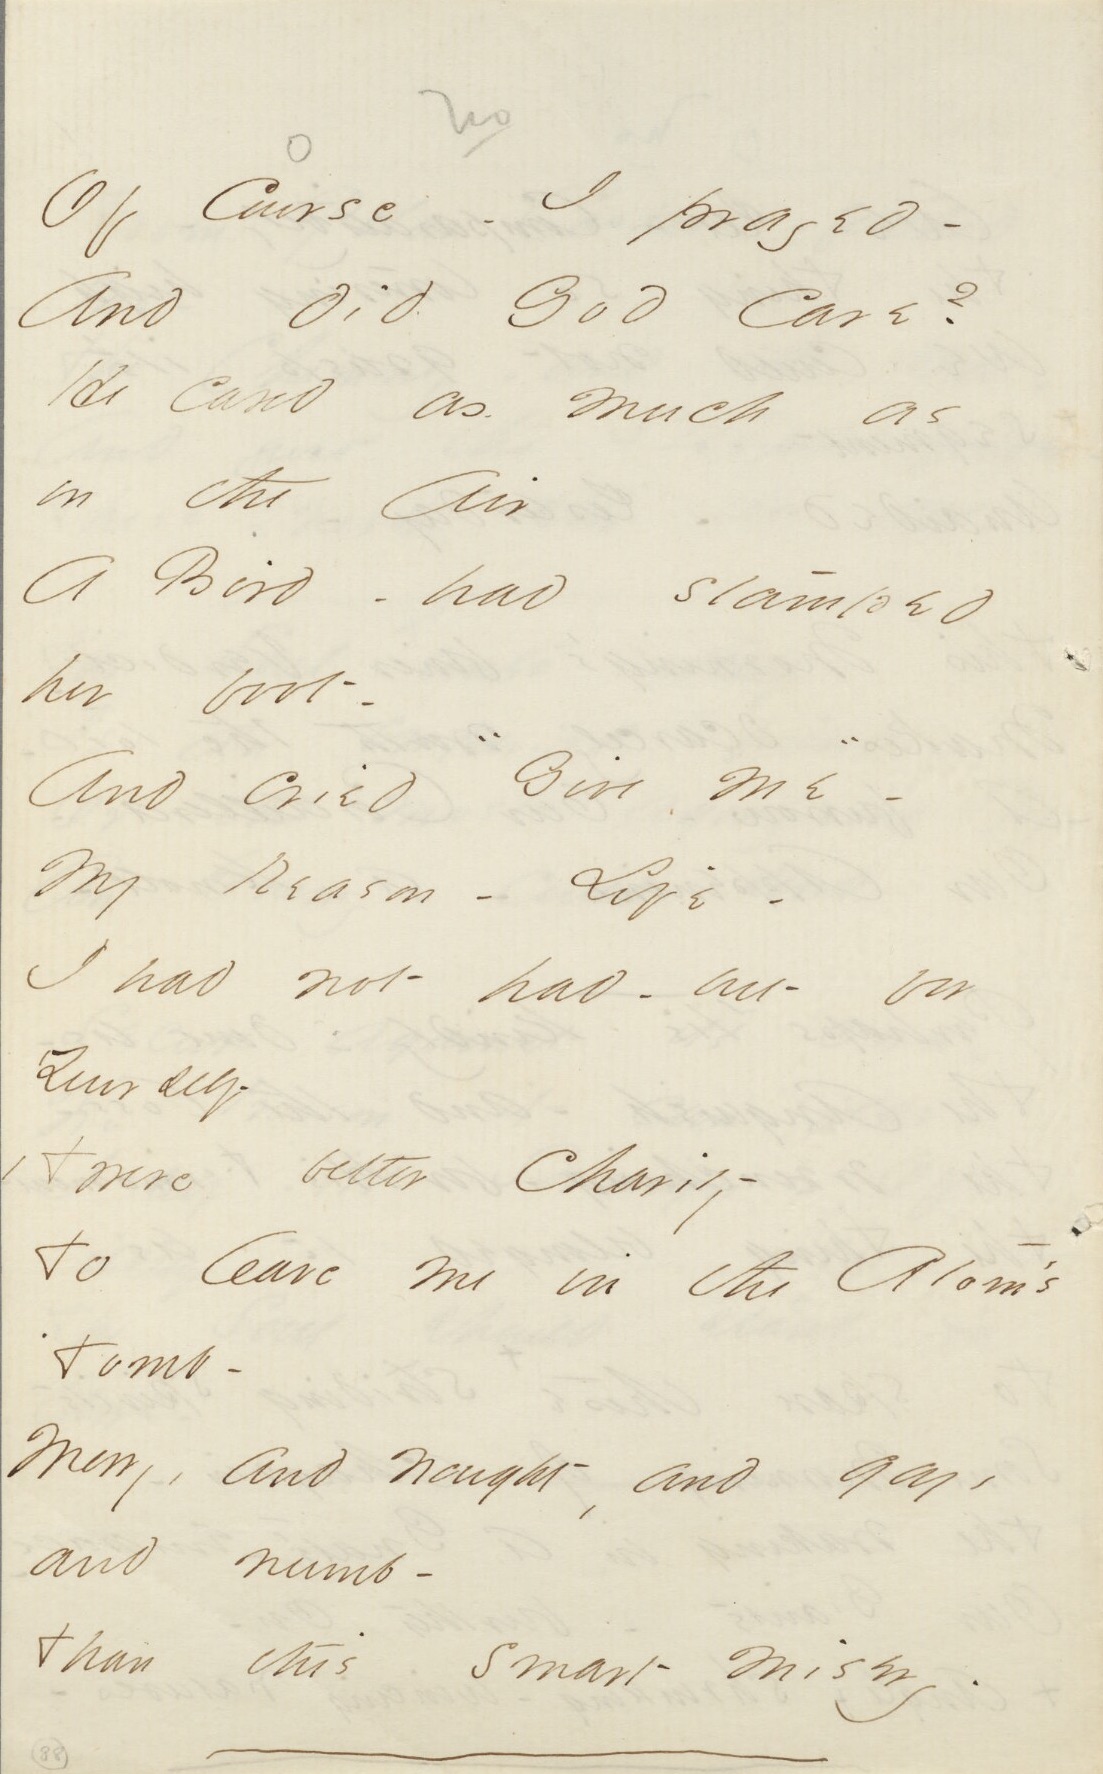 no
o
Of Course - I prayed -
And did God Care?
He cared as much as
on the Air
A Bird - had stamped
her foot -
And cried "Give Me" -
My Reason - Life -
I had not had - but for
Yourself -
'Twere better Charity
To leave me in the Atom's
Tomb -
Merry, and nought, and gay,
and numb -
Than this smart Misery.
38